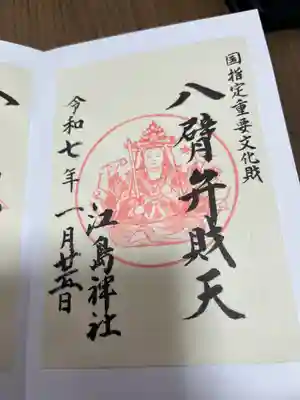 国指定重要文化財
八臂弁財天
江島神社
令和七年一月廿五日